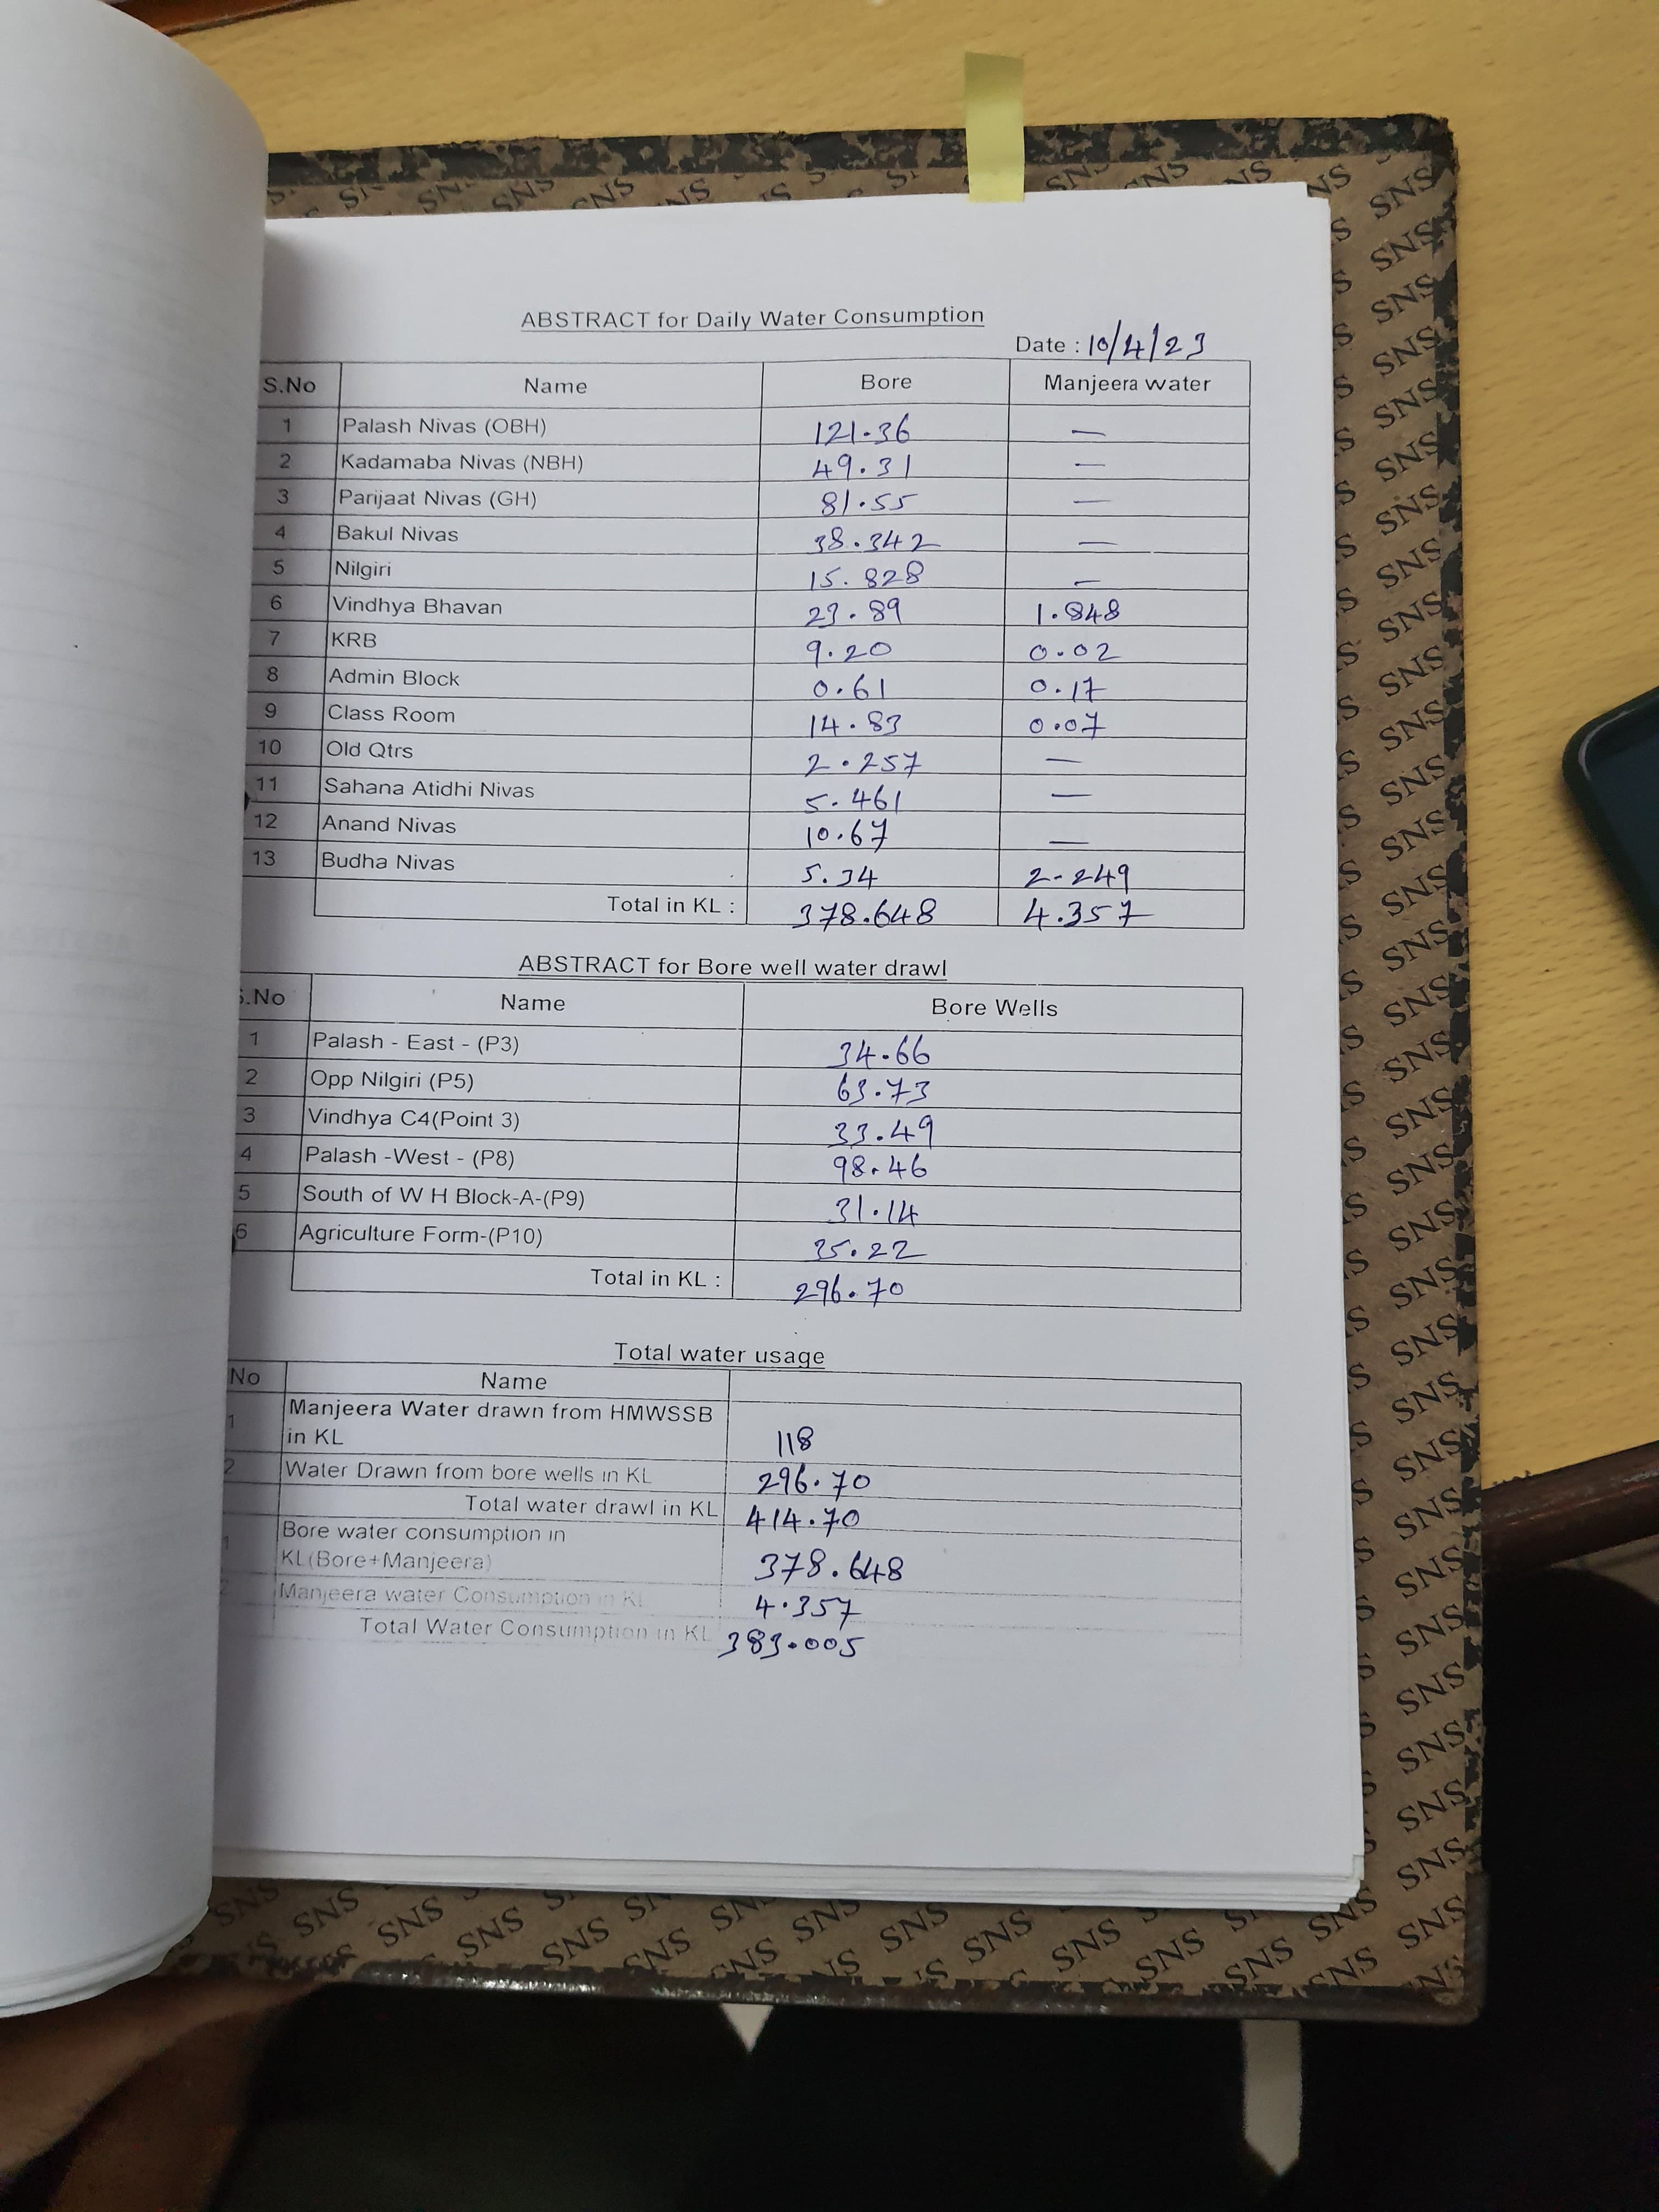 ABSTRACT for Daily Water Consumption
Date : 10/4/23
S.No Name Bore Manjeera water
1 Palash Nivas (OBH) 121.36 —
2 Kadamaba Nivas (NBH) 49.31 —
3 Parijaat Nivas (GH) 81.55 —
4 Bakul Nivas 38.342 —
5 Nilgiri 15.828 —
6 Vindhya Bhavan 23.89 1.848
7 KRB 9.20 0.02
8 Admin Block 0.61 0.17
9 Class Room 14.83 0.07
10 Old Qtrs 2.257 —
11 Sahana Atidhi Nivas 5.461 —
12 Anand Nivas 10.67 —
13 Budha Nivas 5.34 2.249
Total in KL : 378.648 4.357
ABSTRACT for Bore well water drawl
S.No Name Bore Wells
1 Palash - East - (P3) 34.66
2 Opp Nilgiri (P5) 63.73
3 Vindhya C4(Point 3) 33.49
4 Palash -West - (P8) 98.46
5 South of W H Block-A-(P9) 31.14
6 Agriculture Form-(P10) 35.22
Total in KL : 296.70
Total water usage
No Name
1 Manjeera Water drawn from HMWSSB
in KL 118
2 Water Drawn from bore wells in KL 296.70
Total water drawl in KL 414.70
1 Bore water consumption in
KL(Bore+Manjeera) 378.648
2 Manjeera water Consumption in KL 4.357
Total Water Consumption in KL 383.005
SNS